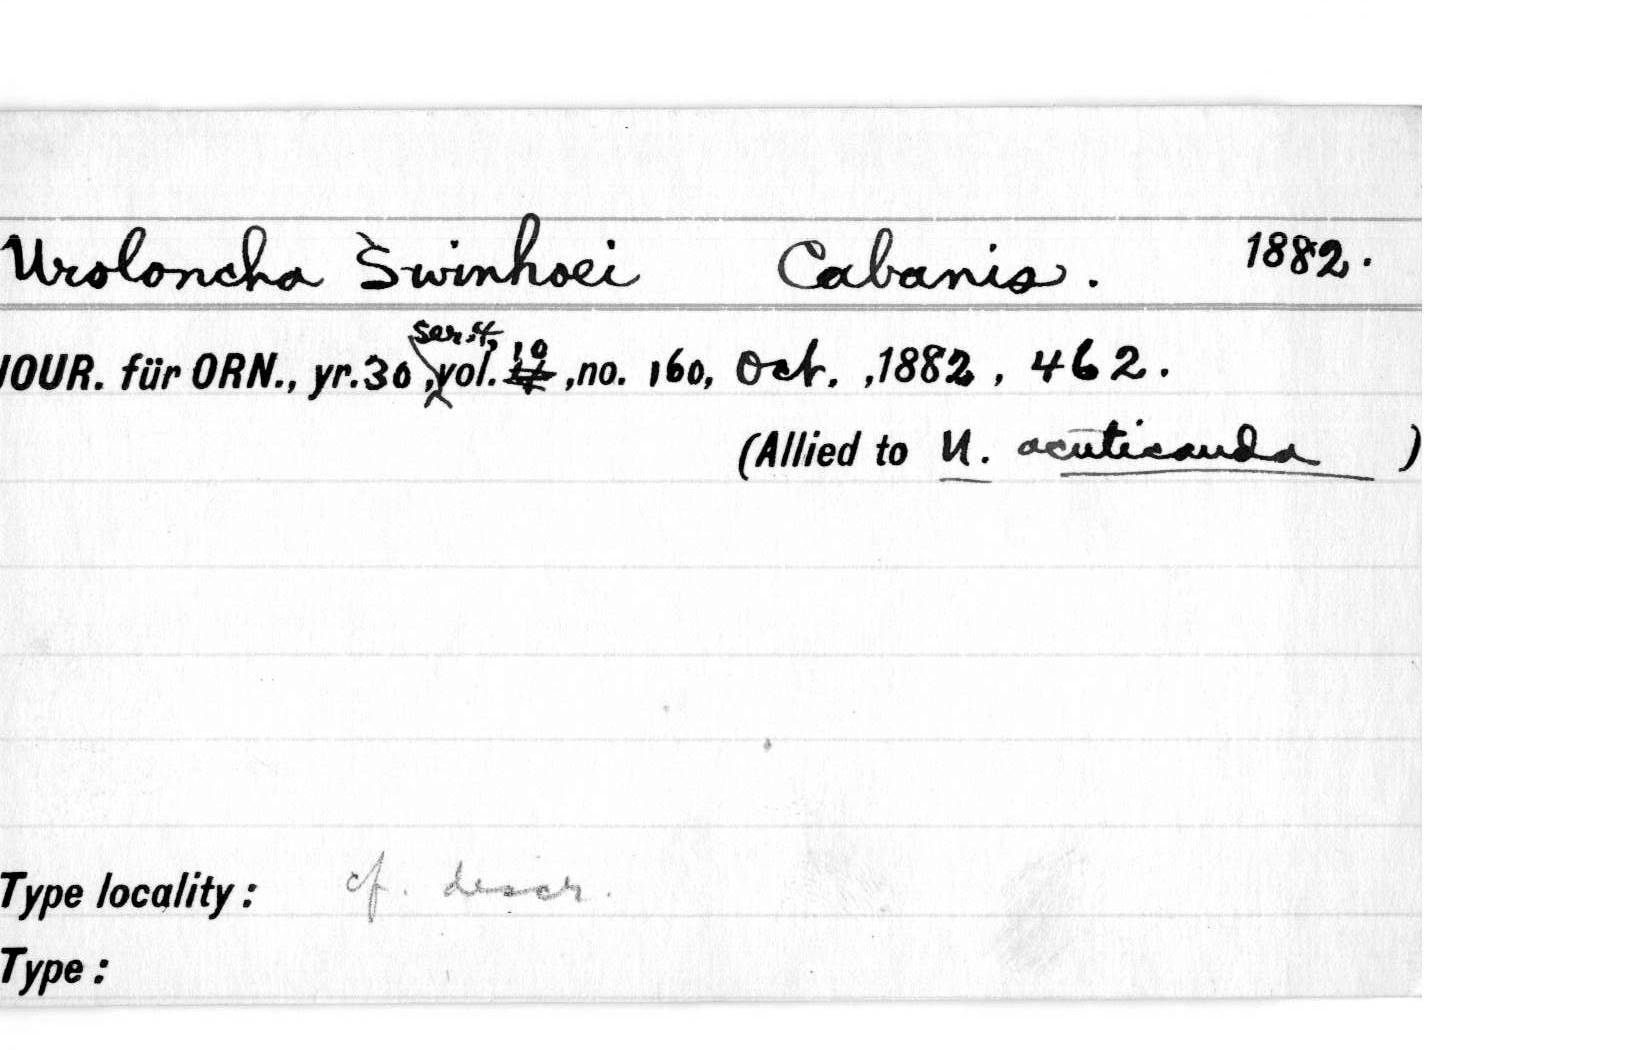 Uroloncha Swinhoei Cabanis. 1882.
JOUR. für ORN., yr.30, ser. 4, vol. 10, no. 160, Oct., 1882, 462.
(Allied to U. acuticauda)
Type locality: cf. descr.
Type: